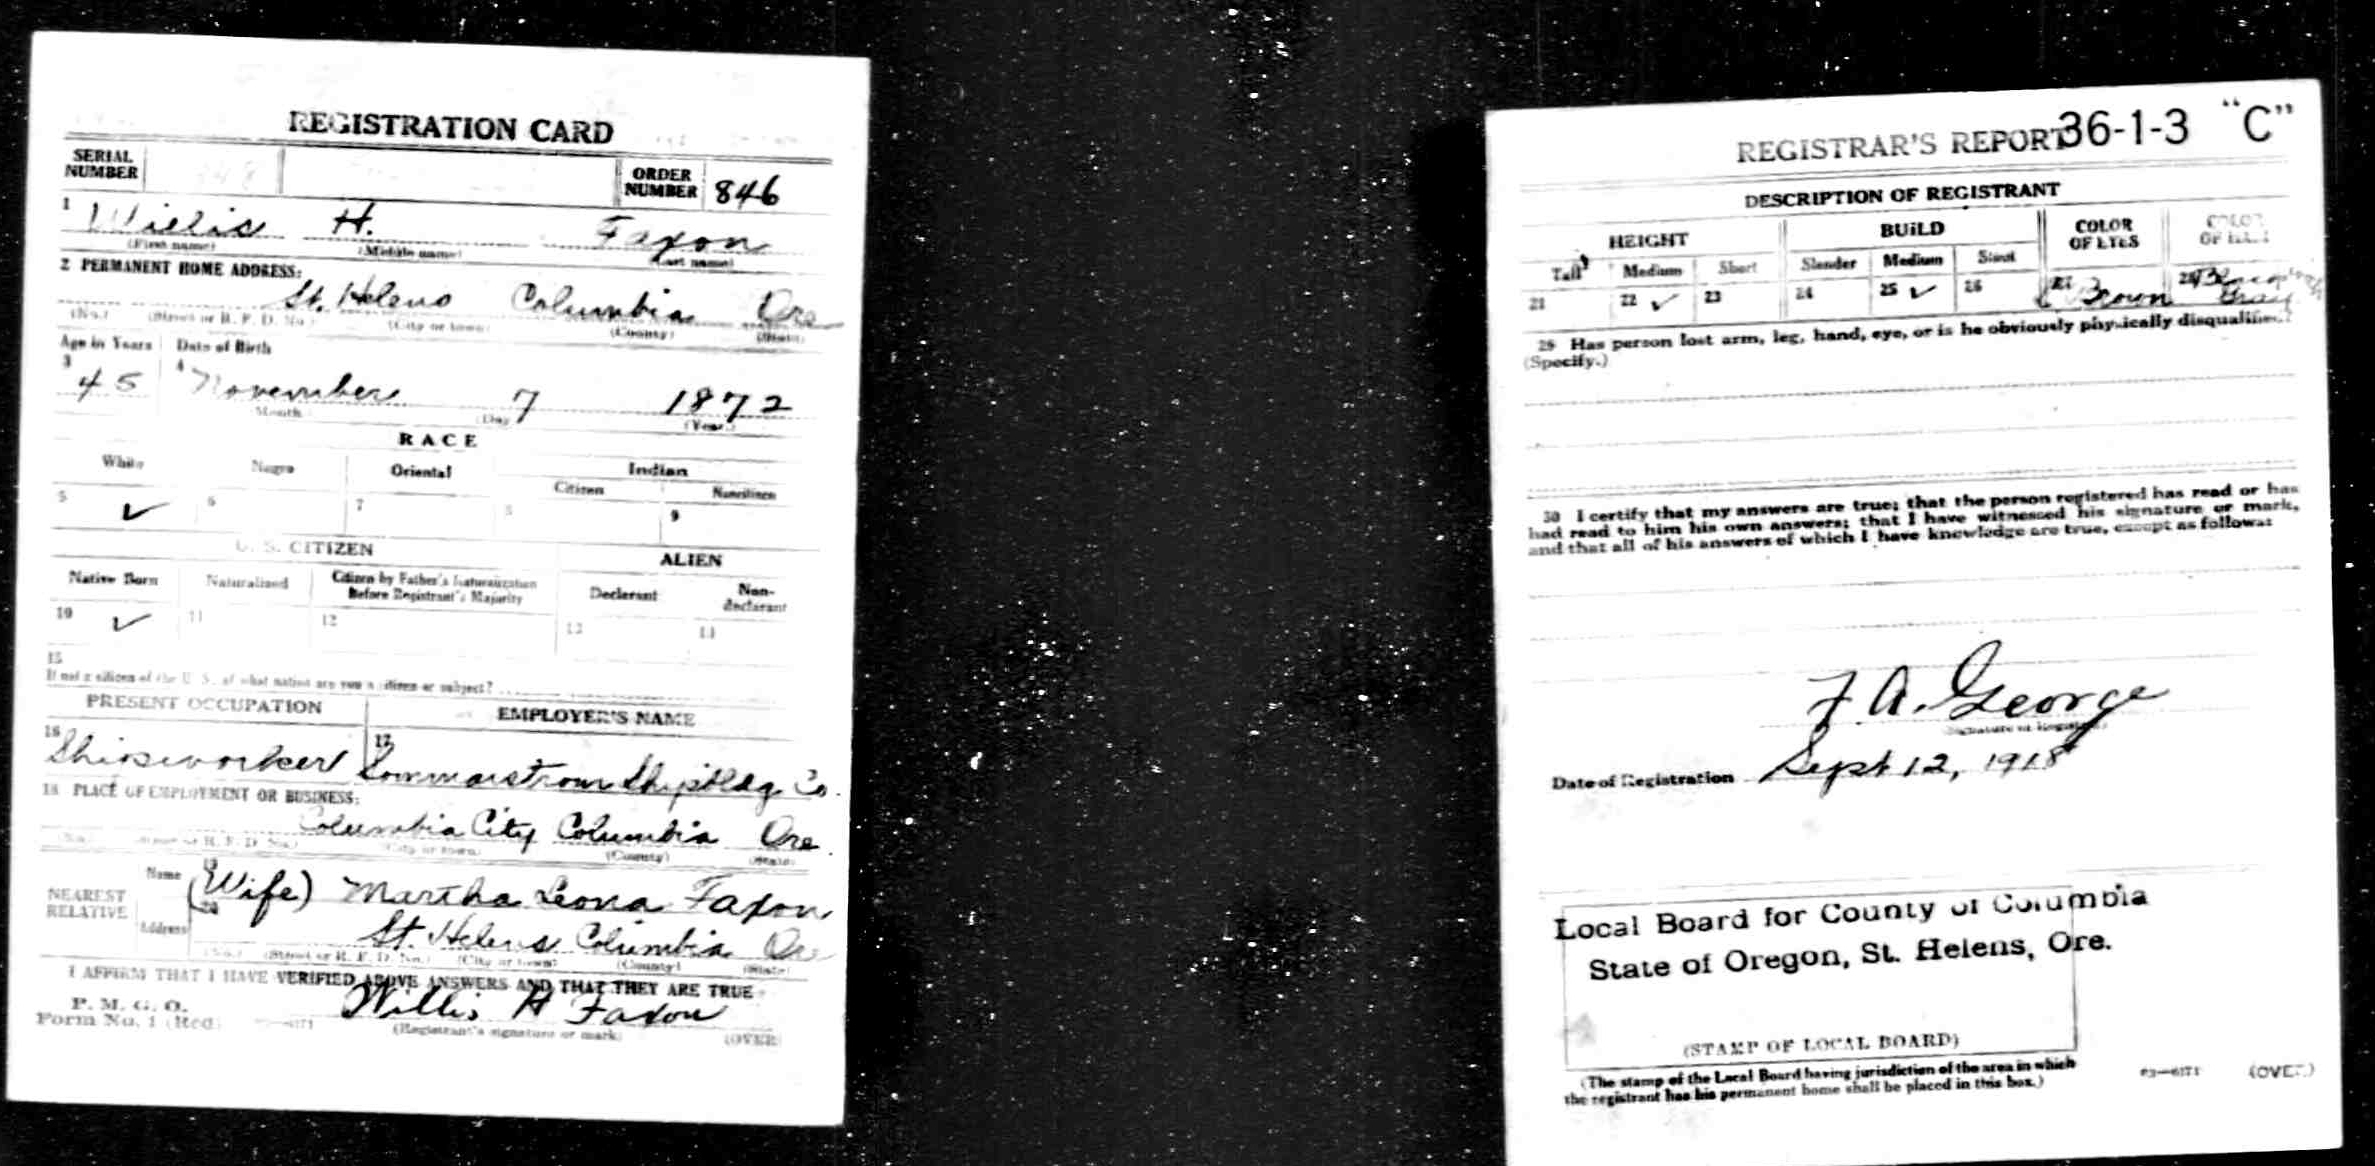 REGISTRATION CARD
SERIAL NUMBER
ORDER NUMBER 846
1 Willis H. Faxon
(First name) (Middle name) (Last name)
2 PERMANENT HOME ADDRESS:
St. Helens Columbia Ore
(No.) (Street or R. F. D. No.) (City or town) (County) (State)
Age in Years Date of Birth
3 45 4 November 7 1872
Month (Day) (Year)
RACE
White Negro Oriental Indian
Citizen Noncitizen
5 ✓ 6 7 8 9
U. S. CITIZEN ALIEN
Native Born Naturalized Citizen by Father's Naturalization Before Registrant's Majority Declarant Non-declarant
10 ✓ 11 12 13 14
15
If not a citizen of the U. S., of what nation are you a citizen or subject?
PRESENT OCCUPATION EMPLOYER'S NAME
16 Shipworker 17 Sommarstrom Shipbldg Co.
18 PLACE OF EMPLOYMENT OR BUSINESS:
Columbia City Columbia Ore.
(No.) (Street or R. F. D. No.) (City or town) (County) (State)
NEAREST RELATIVE
Name 19 (Wife) Martha Leona Faxon
Address 20 St. Helens Columbia Ore
(No.) (Street or R. F. D. No.) (City or town) (County) (State)
I AFFIRM THAT I HAVE VERIFIED ABOVE ANSWERS AND THAT THEY ARE TRUE
P. M. G. O.
Form No. 1 (Red)
Willis H Faxon
(Registrant's signature or mark) (OVER)
REGISTRAR'S REPORT 36-1-3 "C"
DESCRIPTION OF REGISTRANT
HEIGHT BUILD COLOR OF EYES COLOR OF HAIR
Tall Medium Short Slender Medium Stout
21 22 ✓ 23 24 25 ✓ 26 27 Brown 28 Gray
29 Has person lost arm, leg, hand, eye, or is he obviously physically disqualified?
(Specify.)
30 I certify that my answers are true; that the person registered has read or has
had read to him his own answers; that I have witnessed his signature or mark,
and that all of his answers of which I have knowledge are true, except as follows:
F. A. George
(Signature of Registrar)
Date of Registration Sept 12, 1918
Local Board for County of Columbia
State of Oregon, St. Helens, Ore.
(STAMP OF LOCAL BOARD)
(The stamp of the Local Board having jurisdiction of the area in which
the registrant has his permanent home shall be placed in this box.)
03—6171 (OVER)